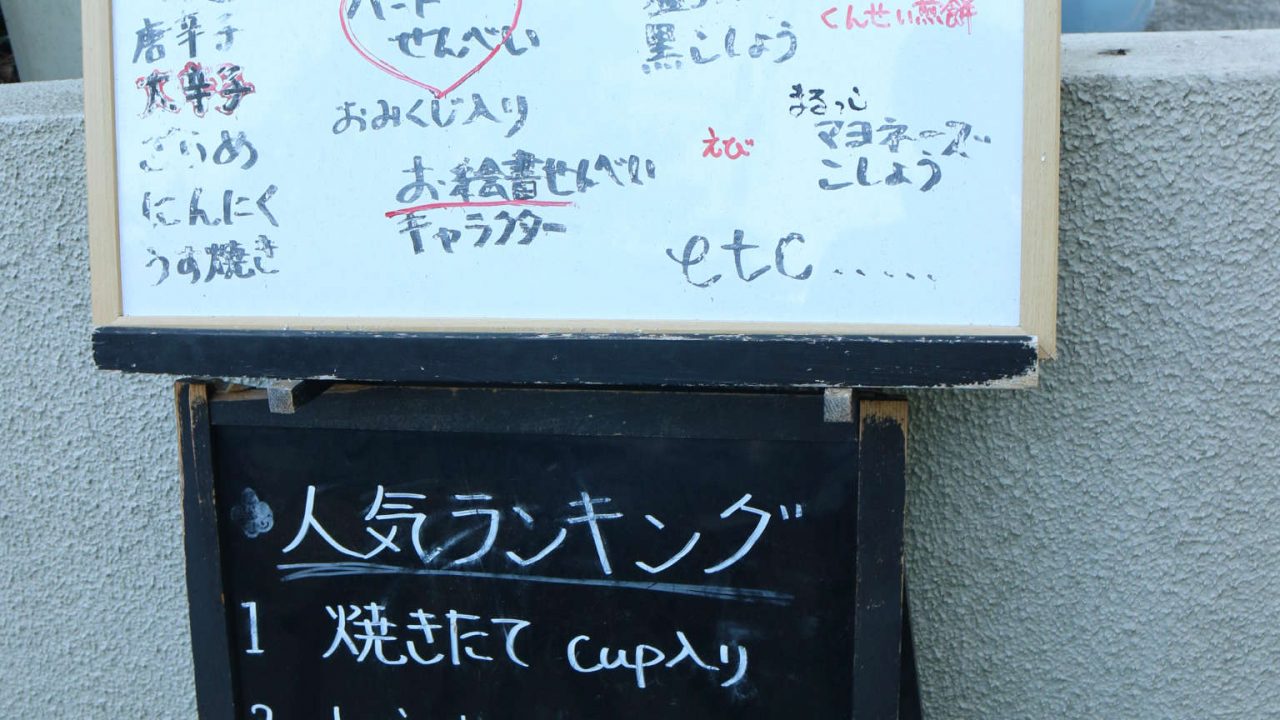 唐辛子
大辛子
ざらめ
にんにく
うす焼き
ハート
せんべい
おみくじ入り
お絵書せんべい
キャラクター
黒こしょう
くんせい煎餅
えび
まるっし
マヨネーズ
こしょう
etc.....
人気ランキング
1 焼きたて cup入り
2